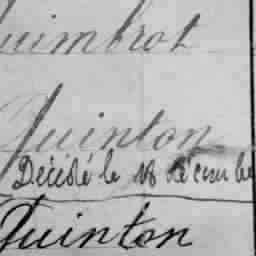 Quimbrot
Quinton
Décédé le 18 décembre
Quinton